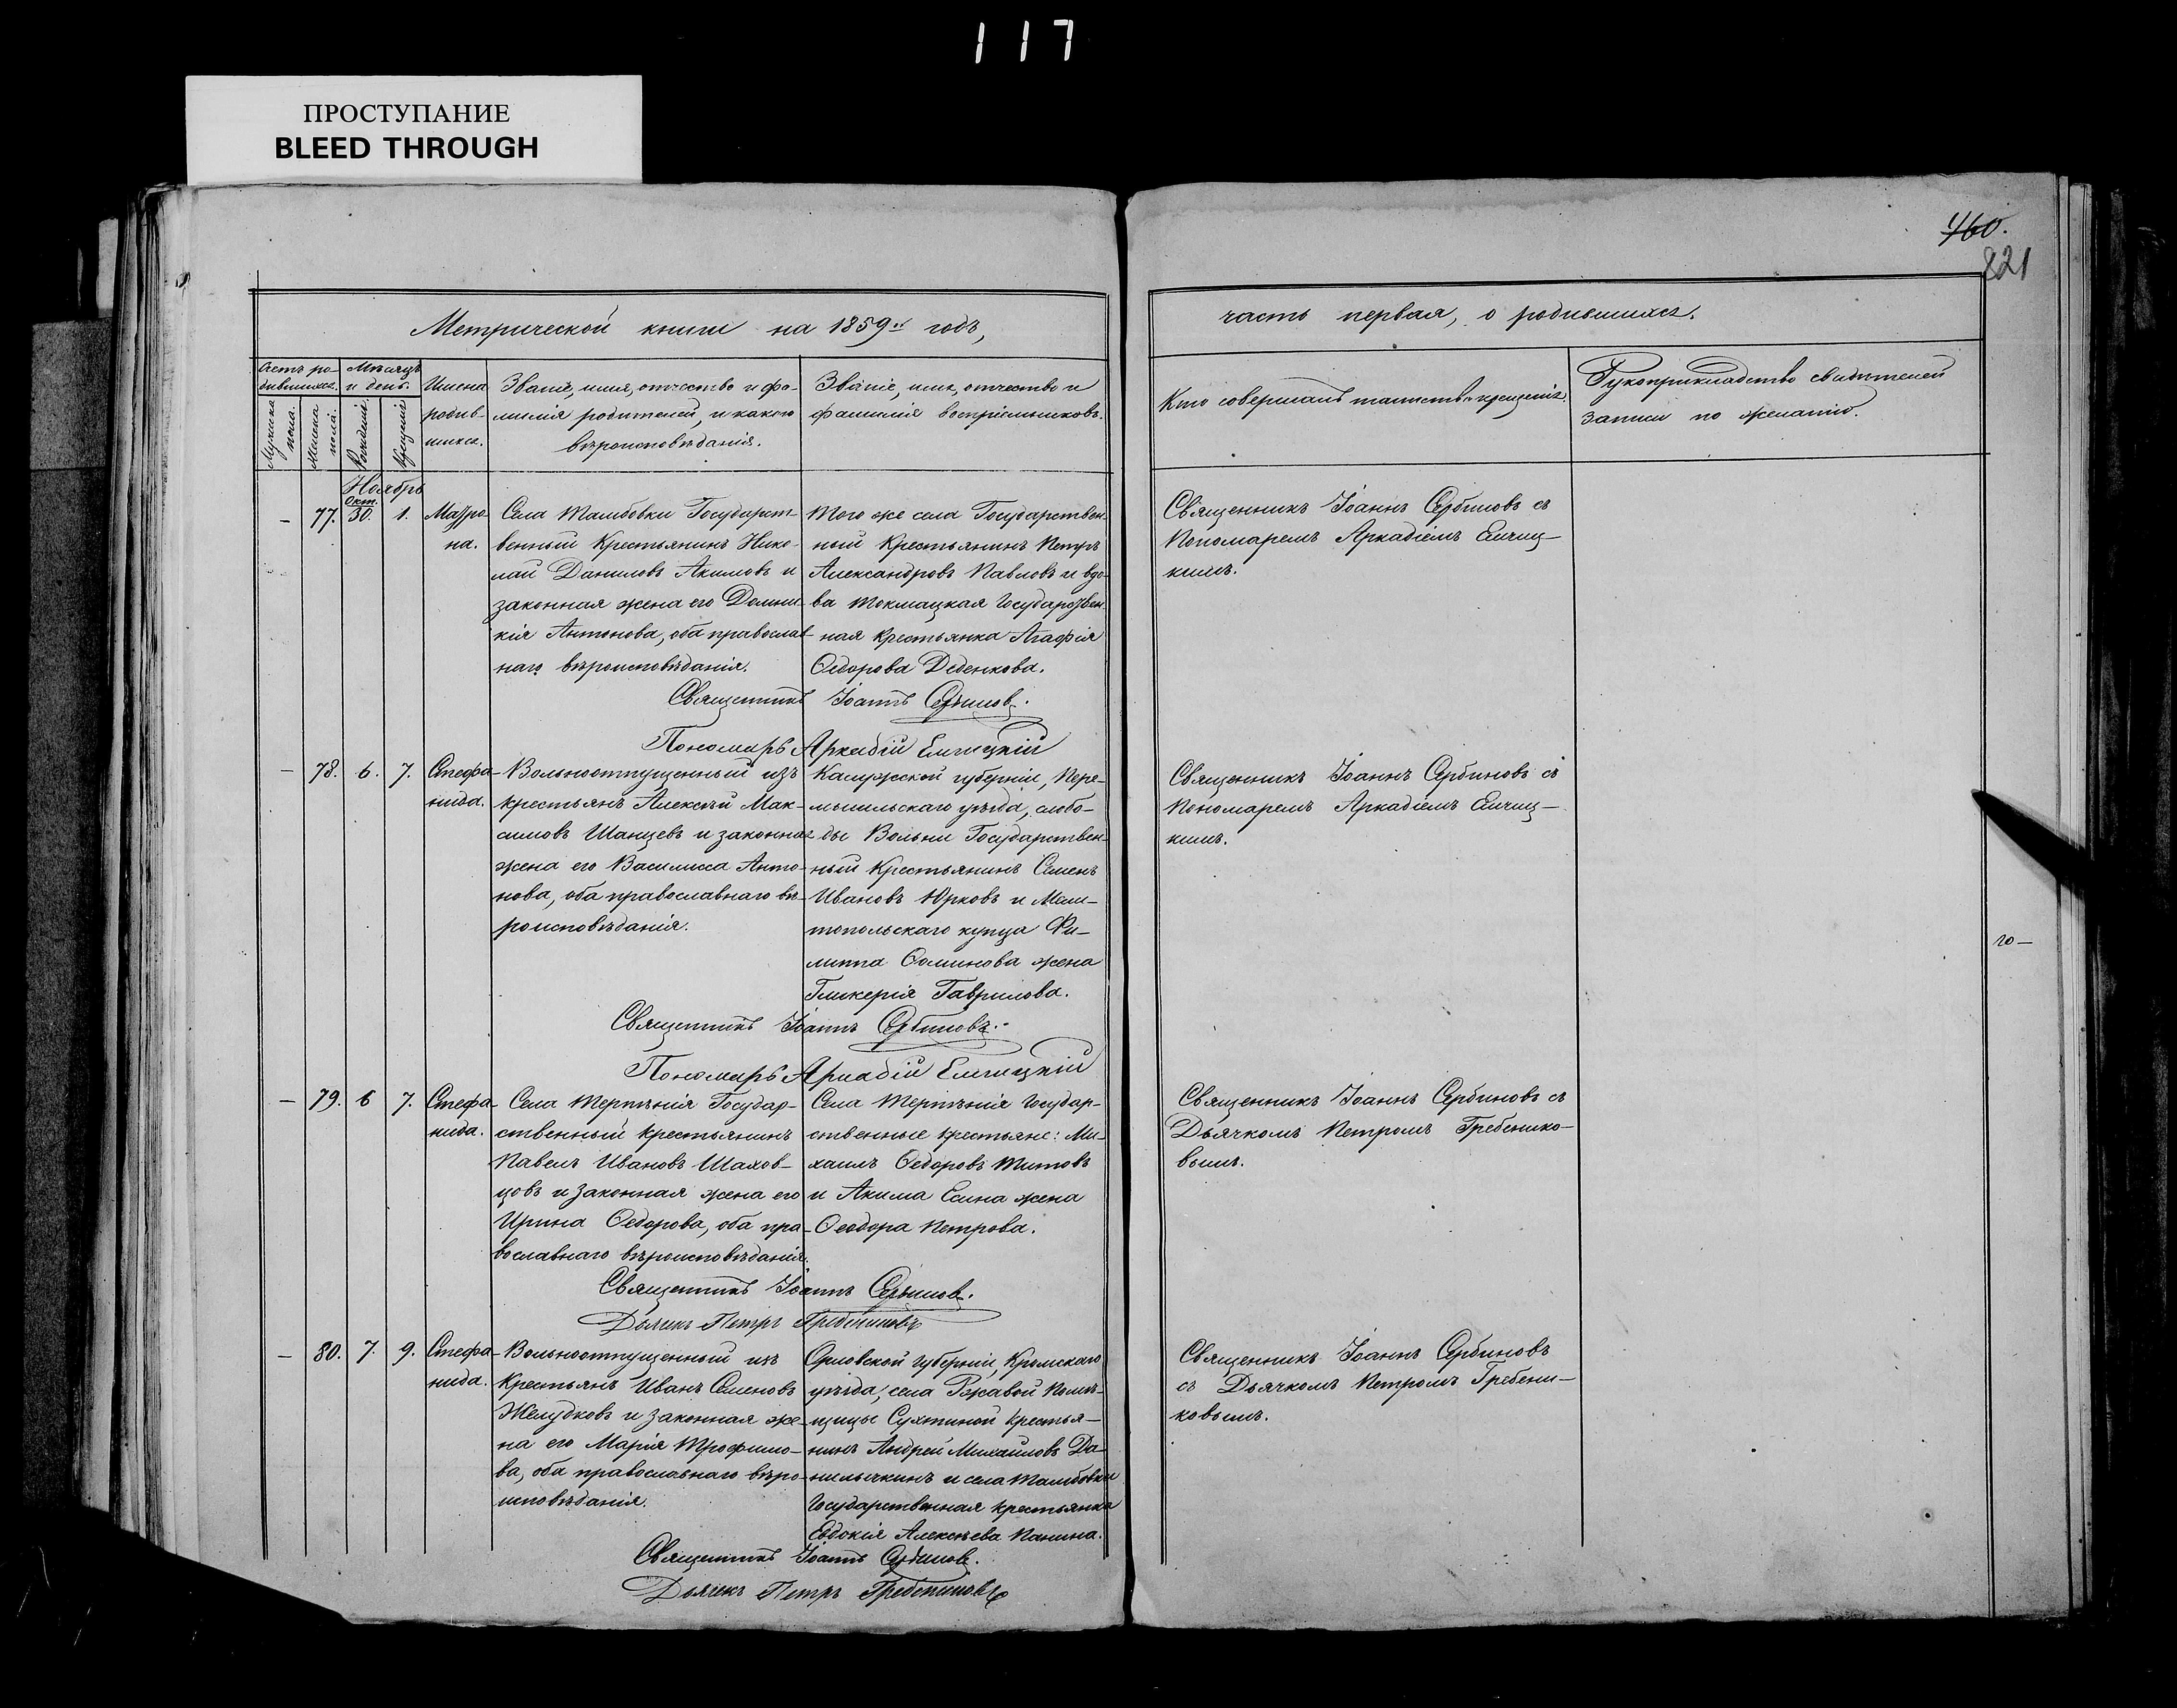 117
ПРОСТУПАНИЕ
BLEED THROUGH
460.
821
Метрической книги на 1859й годъ,
часть первая, о родившихся.
Счетъ ро-
дившихся.
Мужеска
пола.
Женска
пола.
Мѣсяцъ
и день.
Рожденія.
Крещенія.
Имена
родив-
шихся.
Званіе, имя, отчество и фа-
милія родителей, и какого
вѣроисповѣданія.
Званіе, имя, отчество и
фамилія воспріемниковъ.
Кто совершалъ таинство крещенія.
Рукоприкладство свидѣтелей
записи по желанію.
Ноябрь
Окт.
— 77. 30. 1.
Матро-
на.
Села Тамбовки Государст-
венный Крестьянинъ Нико-
лай Даниловъ Акимовъ и
законная жена его Домни-
кія Антонова, оба православ-
наго вѣроисповѣданія.
Того же села Государствен-
ный Крестьянинъ Петръ
Александровъ Павловъ и вдо-
ва Токмацкая Государствен-
ная крестьянка Агафія
Ѳедорова Деденкова.
Священникъ Іоаннъ Сербиновъ съ
Пономаремъ Аркадіемъ Елчиц-
кимъ.
Священникъ Іоаннъ Сербиновъ.
Пономарь Аркадій Елчицкій
— 78. 6. 7.
Стефа-
нида.
Вольноотпущенный изъ
крестьянъ Алексѣй Мак-
симовъ Шанцевъ и законная
жена его Василисса Анто-
нова, оба православнаго вѣ-
роисповѣданія.
Калужской губерніи, Пере-
мышльскаго уѣзда, слобо-
ды Вольни Государствен-
ный Крестьянинъ Семенъ
Ивановъ Юрковъ и Мели-
топольскаго купца Фи-
липпа Ѳоминова жена
Гликерія Гаврилова.
Священникъ Іоаннъ Сербиновъ съ
Пономаремъ Аркадіемъ Елчиц-
кимъ.
го—
Священникъ Іоаннъ Сербиновъ.
Пономарь Аркадій Елчицкій
— 79. 6 7.
Стефа-
нида.
Села Терпѣнія Государ-
ственный крестьянинъ
Павелъ Ивановъ Шахов-
цовъ и законная жена его
Ирина Ѳедорова, оба пра-
вославнаго вѣроисповѣданія.
Села Терпѣнія Государ-
ственные крестьяне: Ми-
хаилъ Ѳедоровъ Титовъ
и Акима Есина жена
Ѳеодора Петрова.
Священникъ Іоаннъ Сербиновъ съ
Дьячкомъ Петромъ Гребенико-
вымъ.
Священникъ Іоаннъ Сербиновъ.
Дьячекъ Петръ Гребениковъ
— 80. 7. 9.
Стефа-
нида.
Вольноотпущенный изъ
Крестьянъ Иванъ Семеновъ
Желудковъ и законная же-
на его Марія Трофимо-
ва, оба православнаго вѣро-
исповѣданія.
Орловской губерніи, Кромскаго
уѣзда, села Ржавой Помѣ-
щицы Сухтиной крестья-
нинъ Андрей Михаиловъ Да-
нилычкинъ и села Тамбовки
Государственная крестьянка
Евдокія Алексѣева Панина.
Священникъ Іоаннъ Сербиновъ
съ Дьячкомъ Петромъ Гребени-
ковымъ.
Священникъ Іоаннъ Сербиновъ.
Дьячекъ Петръ Гребениковъ